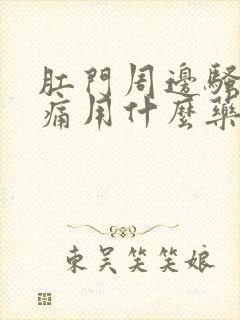 肛門周邊騷
痛用什麼藥
東吴笑笑娘